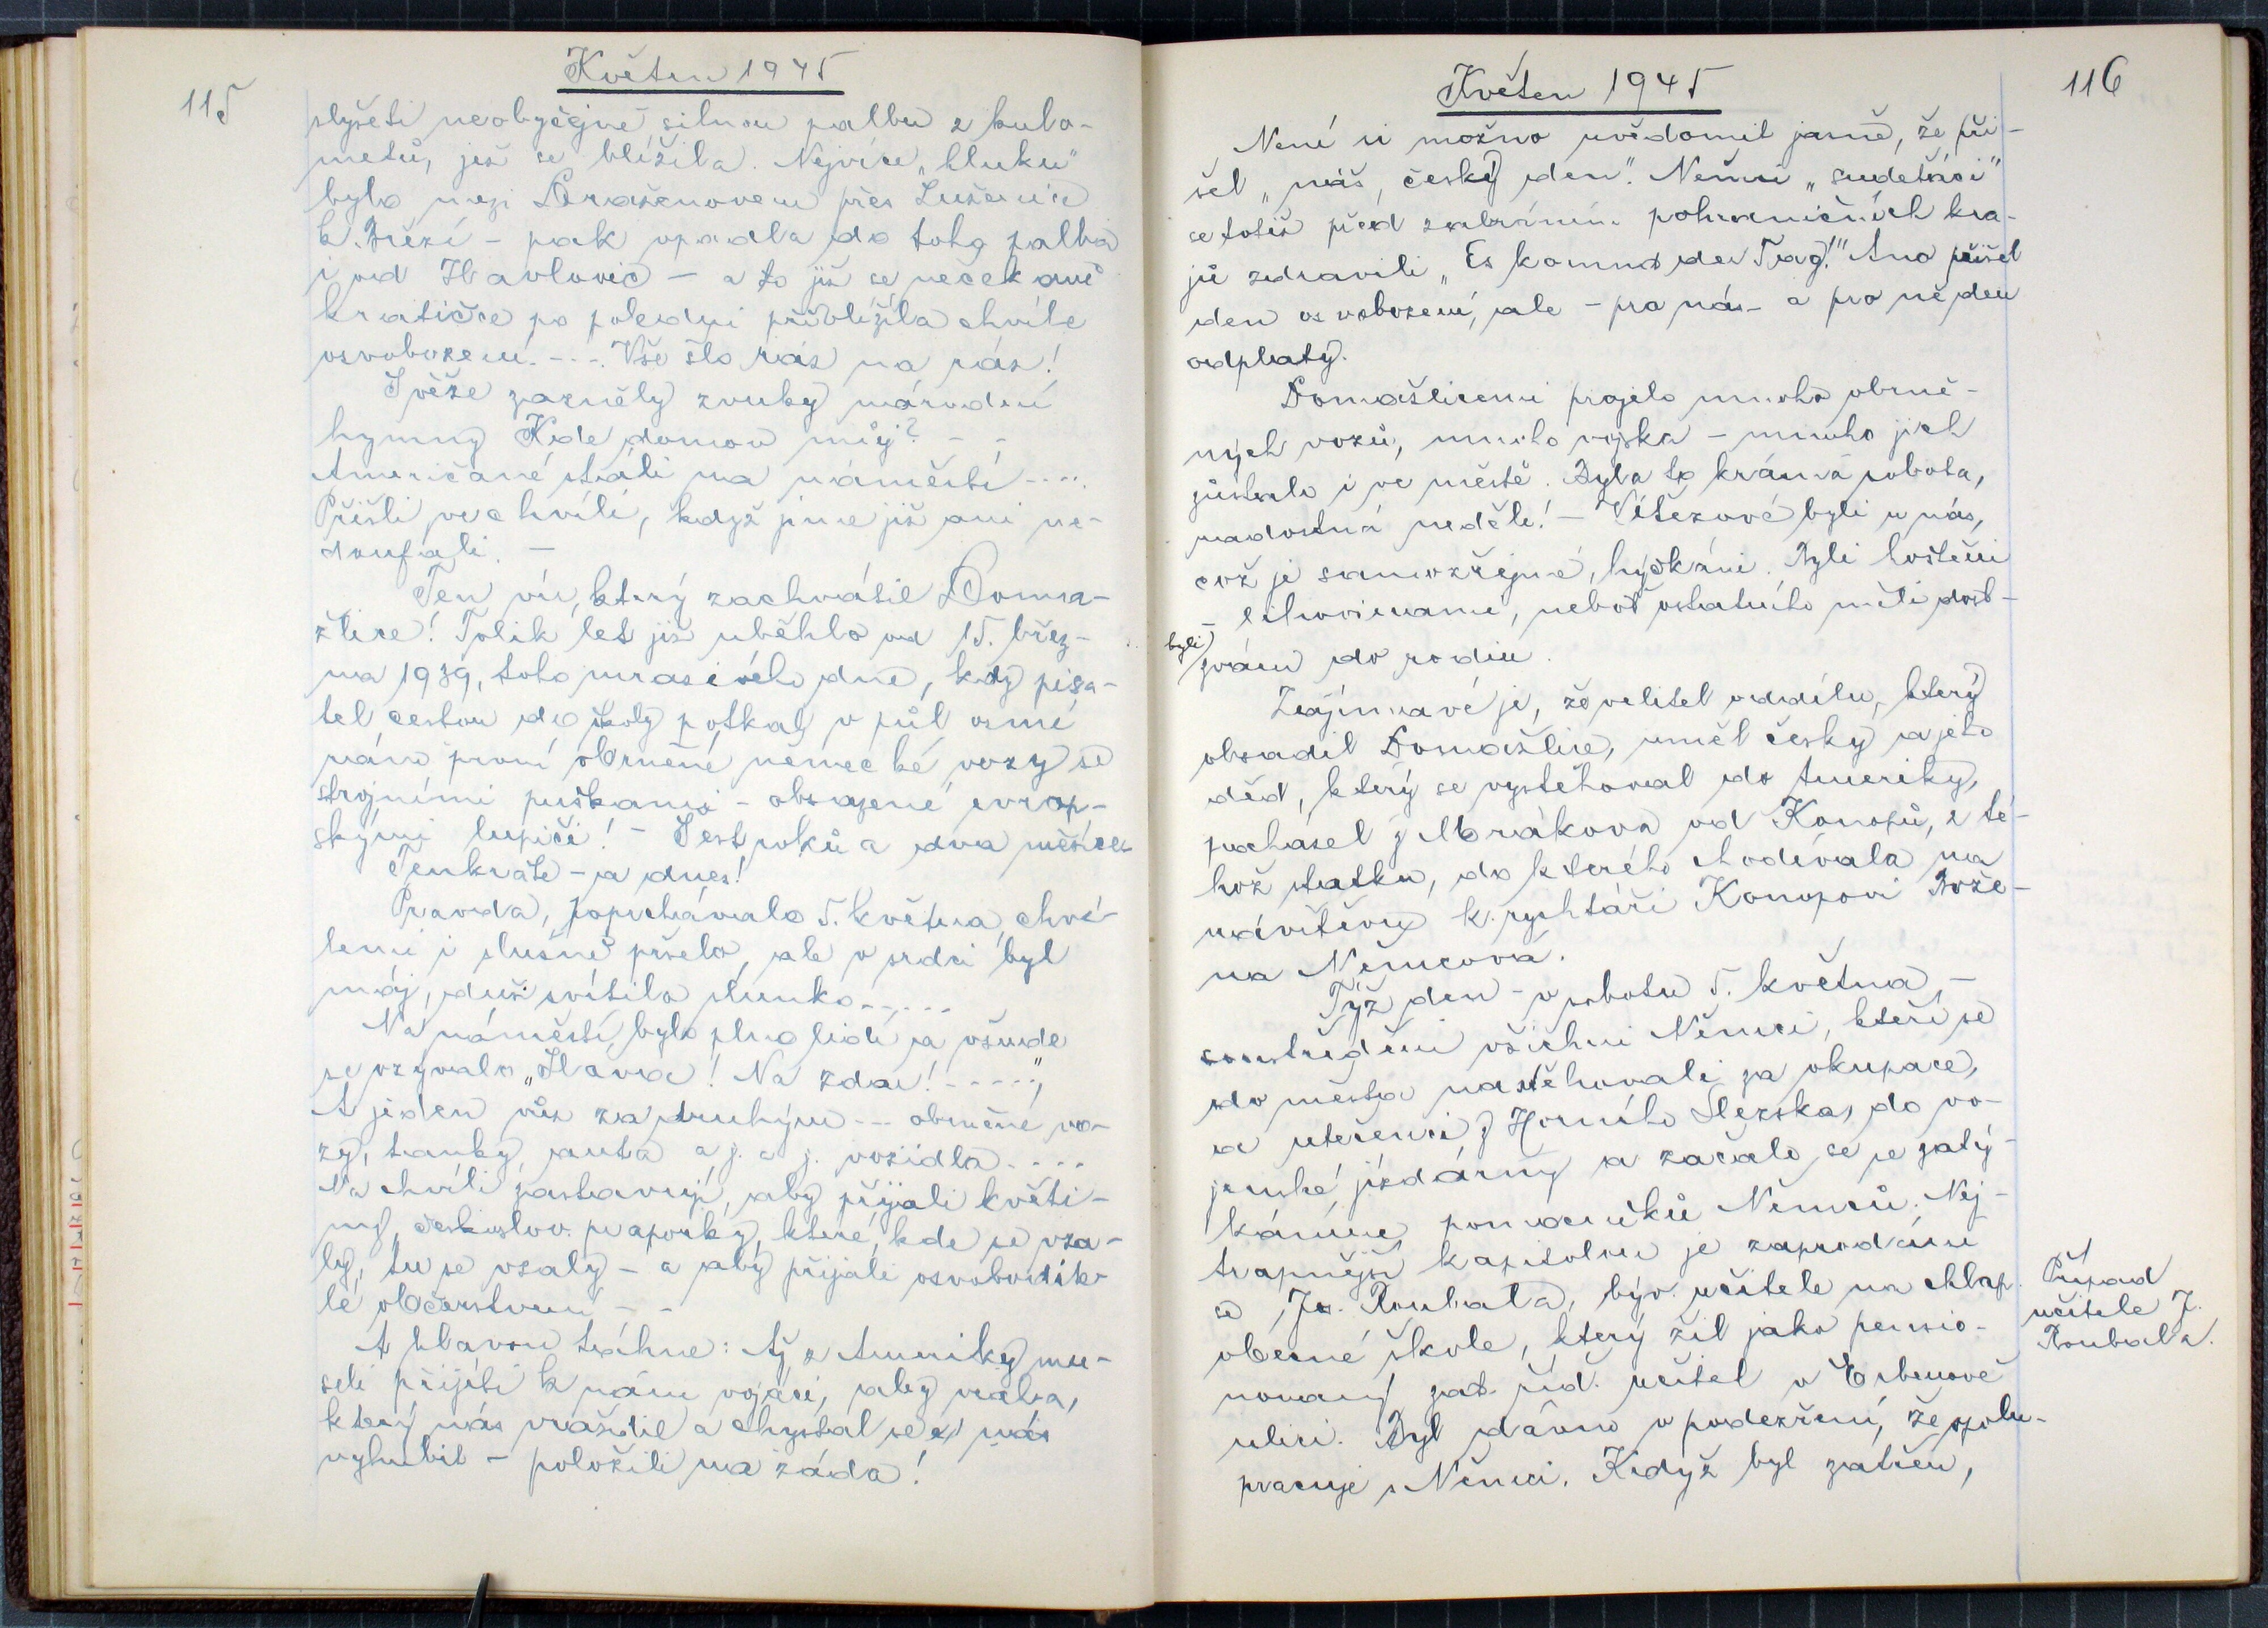 Květen 1945
115
slyšeti neobyčejně silnou palbu z kulo-
metů, jež se blížila. Nejvíce „hluku"
bylo mezi Straženovem přes Luženice
k Březí – pak vpadla do toho palba
i od Havlovic – a to již se nečekaně
kratičce po poledni přiblížila chvíle
osvobození. - - - Vše šlo ráz na ráz!
S věže zazněly zvuky národní
hymny Kde domov můj? - -
Američané stáli na náměstí - - - -
Přišli ve chvíli, když jsme již ani ne-
doufali. –
Ten vír, který zachvátil Doma-
žlice! Tolik let již uběhlo od 15. břez-
na 1939, toho mrazivého dne, kdy pisa-
tel cestou do školy potkal v půl osmé
ráno první obrněné německé vozy se
strojními puškami – obsazené evrop-
skými lupiči! – Šest roků a dva měsíce
Tenkráte – a dnes!
Pravda, poprchávalo 5. května, chví-
lemi i slušně pršelo, ale v srdci byl
máj, duší svítilo slunko - - - - -
Na náměstí bylo plno lidí a všude
se ozývalo „Sláva! Na zdar! - - - - -"
A jeden vůz za druhým - - - obrněné vo-
zy, tanky, auta a j. a j. vozidla - - - -
Na chvíli zastavují, aby přijali květi-
ny, českoslov. praporky, které, kde se vza-
ly, tu se vzaly – a aby přijali osvoboditi-
lé občerstvení - -
A hlavou táhne: Až z Ameriky mu-
seli přijíti k nám vojáci, aby vraha,
který nás vraždil a chystal se nás
vyhubit – položili na záda!
Květen 1945
116
Není si možno uvědomit jasně, že při-
šel „náš, český den". Němci „sudeťáci"
se totiž před zabráním pohraničních kra-
jů zdravili „Es kommt der Tag!" Ano přišel
den osvobození, ale – pro nás – a pro ně den
odplaty.
Domažlicemi projelo mnoho obrně-
ných vozů, mnoho vojska – mnoho jich
zůstalo i ve městě. Byla to krásná sobota,
radostná neděle! – Vítězové byli u nás,
což je samozřejmé, hýčkáni. Byli hoštěni
– lihovinami, neboť ostatního měli dost –
byli zváni do rodin.
Zajímavé je, že velitel oddílu, který
obsadil Domažlice, uměl česky a jeho
děd, který se vystěhoval do Ameriky,
pocházel z Mrákova od Konopů, z té-
hož statku, do kterého chodívala na
návštěvu k rychtáři Konopovi Bože-
na Němcová.
Týž den – v sobotu 5. května –
soustředěni všichni Němci, kteří se
do města nastěhovali za okupace,
a utečenci z Horního Slezska, do vo-
jenské jízdárny a začalo se se zatý-
káním pomocníků Němců. Nej-
trapnější kapitolou je zaprodání
se Jos. Roubala, býv. učitele na chlap.
obecné škole, který žil jako pensio-
novaný zat. říd. učitel v Erbenově
ulici. Byl dávno v podezření, že spolu-
pracuje s Němci. Když byl zatčen,
Případ
učitele J.
Roubala.